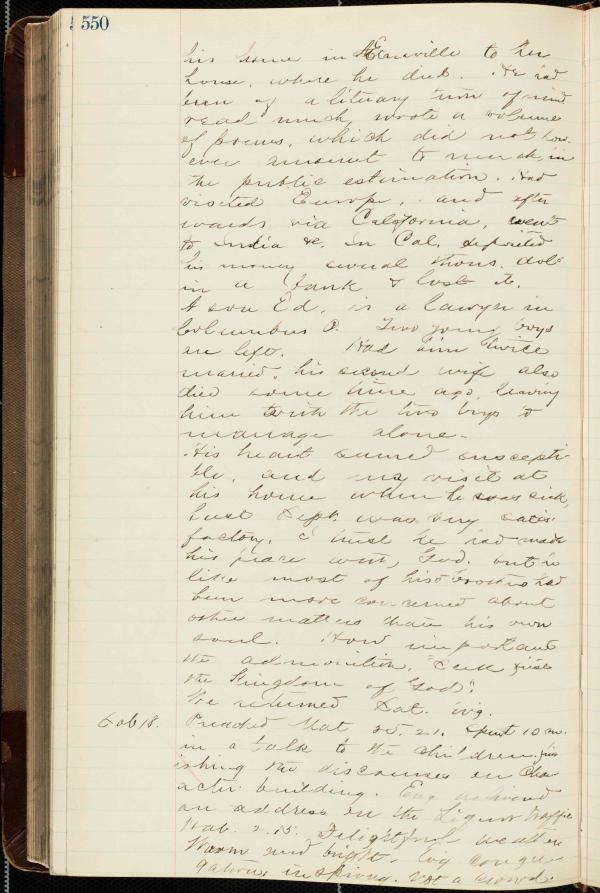 550
his home in Zanesville to her
house, where he died. He had
been of a literary turn of mind
read much, wrote a volume
of poems, which did not how-
ever amount to much, in
the public estimation. Had
visited Europe, and after
wards via California, went
to India &c. In Cal. deposited
his money several thous. dols
in a bank & lost it.
A son Ed, is a lawyer in
Columbus O. Two young boys
are left. Had been twice
married, his second wife also
died some time ago, leaving
him with the two boys to
manage alone.
His heart seemed suscepti-
ble, and my visit at
his home when he was sick,
last Sept. was very satis-
factory. I trust he had made
his peace with God. but
like most of his brothers had
been more concerned about
other matters than his own
soul. How important
the admonition, "Seek first
the Kingdom of God".
We returned Sat. evg.
Feb 18. Preached Mat 25.21. Spent 10 m.
in a talk to the children, fin-
ishing the discourses on Char
acter building. Evg delivered
an address on the Liquor traffic
Hab. 2.15. Delightful weather
Warm and bright. Evg congre-
gation inspiring. Not a crowd.